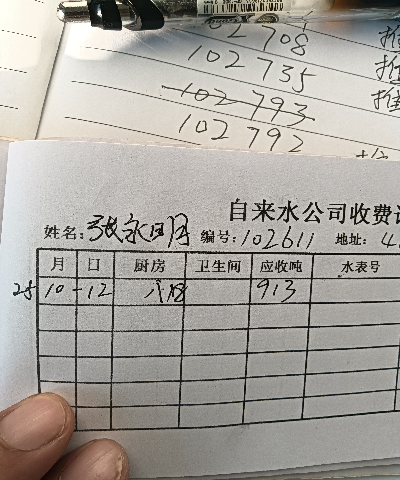 102708
102735
102793
102792
自来水公司收费
姓名:张永明 编号:102611 地址: 4
月 日 厨房 卫生间 应收吨 水表号
25 10-12 913